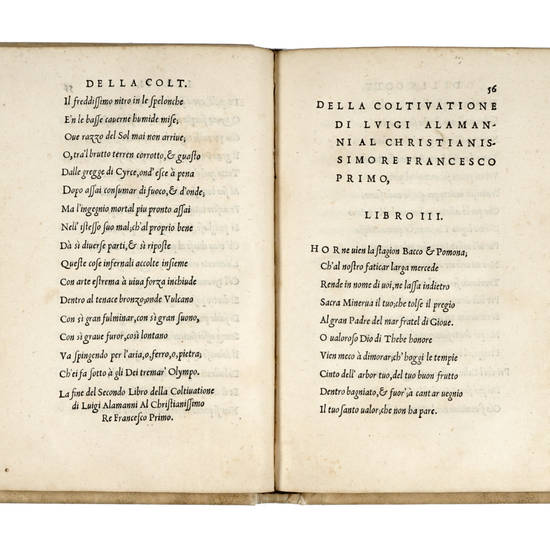 DELLA COLT.
Il freddissimo nitro in le spelonche
E'n le basse cauerne humide mise,
Oue razzo del Sol mai non arriue,
O, tra'l brutto terren corrotto, & guasto
Dalle gregge di Cyrce, ond'esce à pena
Dopo assai consumar di fuoco, & d'onde,
Ma l'ingegnio mortal piu pronto assai
Nell'istesso suo mal, ch'al proprio bene
Dà sì diuerse parti, & sì riposte
Queste cose infernali accolte insieme
Con arte estrema à uiua forza inchiude
Dentro al tenace bronzo, onde Vulcano
Con sì gran fulminar, con sì gran suono,
Con sì graue furor, così lontano
Va spingendo per l'aria, o, ferro, o, pietra,
Ch'ei fa sotto à gli Dei tremar' Olympo.
La fine del Secondo Libro della Coltiuatione
di Luigi Alamanni Al Christianissimo
Re Francesco Primo.
56
DELLA COLTIVATIONE
DI LVIGI ALAMAN-
NI AL CHRISTIANIS-
SIMO RE FRANCESCO
PRIMO,
LIBRO III.
HOR ne uien la stagion Bacco & Pomona,
Ch'al nostro faticar larga mercede
Rende in nome di uoi, ne lassa indietro
Sacra Minerua il tuo; che tolse il pregio
Al gran Padre del mar fratel di Gioue.
O ualoroso Dio di Thebe honore
Vien meco à dimorar, ch'hoggi le tempie
Cinto dell'arbor tuo, del tuo buon frutto
Dentro bagniato, & fuor', à cantar uegnio
Il tuo santo ualor, che non ha pare.